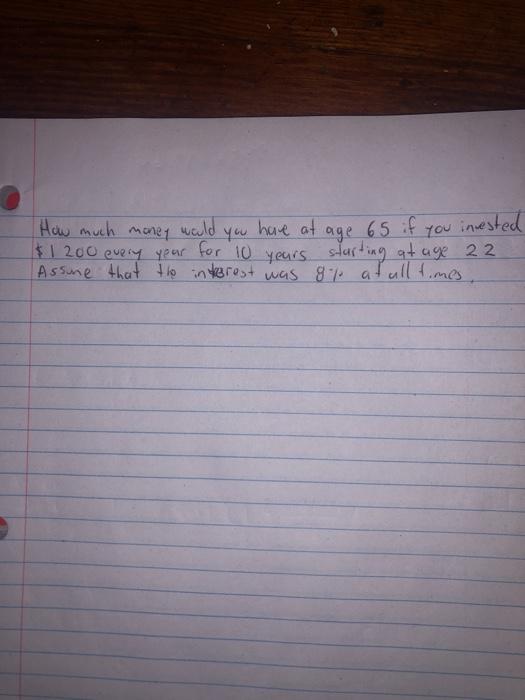 How much money would you have at age 65 if you invested
$1200 every year for 10 years starting at age 22
Assume that the interest was 8% at all times.